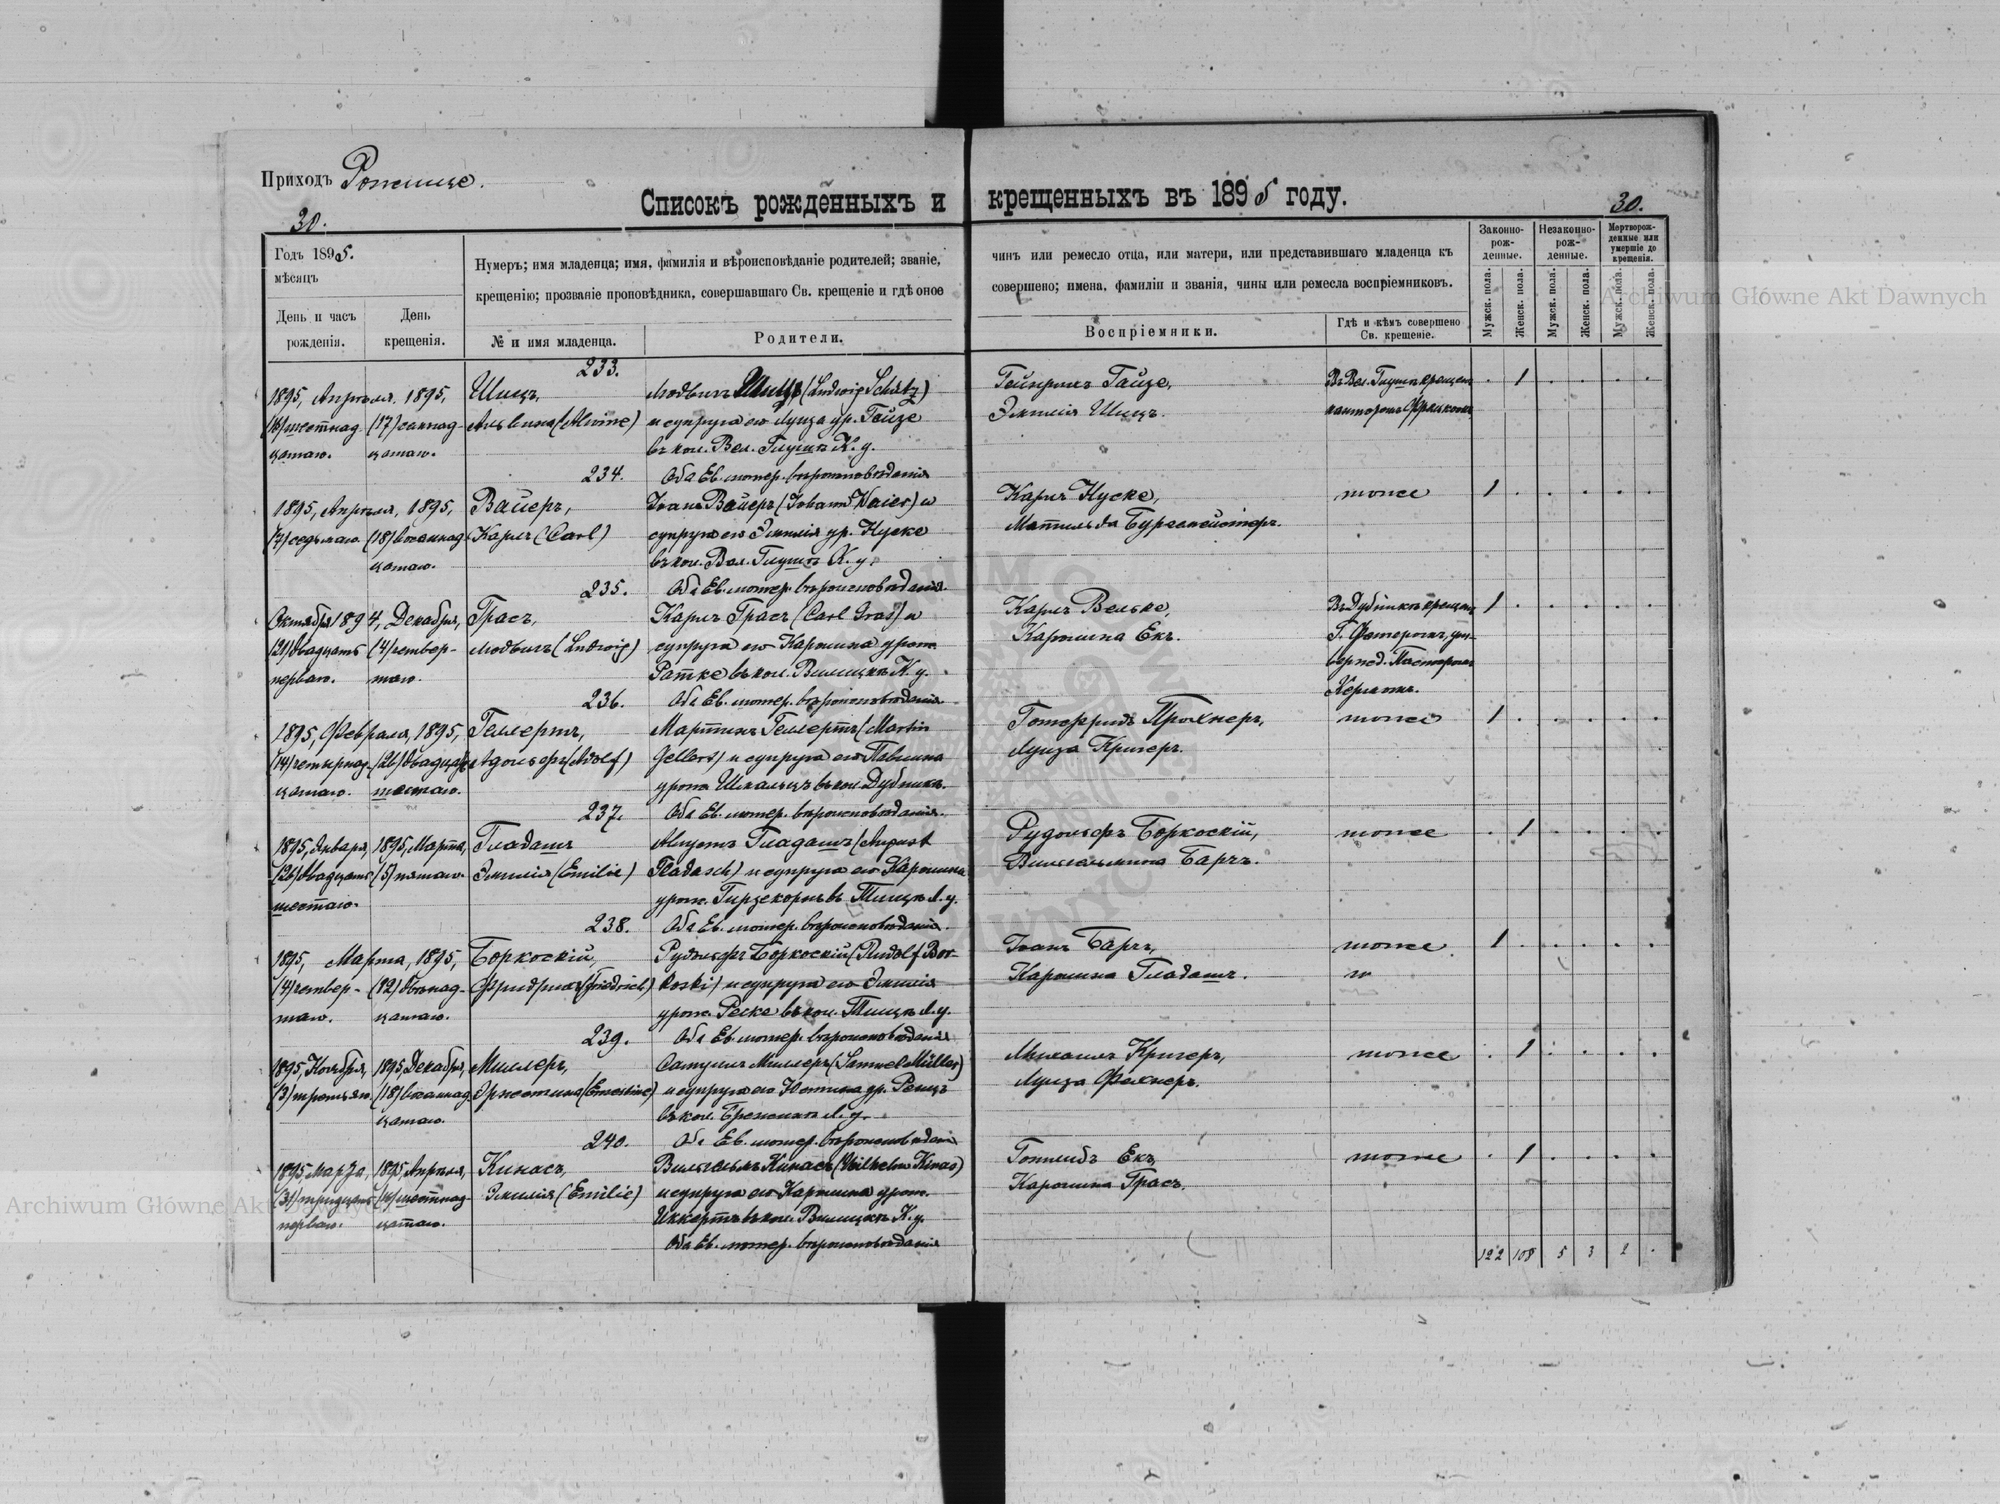 Приходъ Рожище.
30.
Списокъ рожденныхъ и крещенныхъ въ 1895 году.
30.
Годъ 1895.
мѣсяцъ
День и часъ рожденія.
День крещенія.
Нумеръ; имя младенца; имя, фамилія и вѣроисповѣданіе родителей; званіе,
крещенію; прозваніе проповѣдника, совершавшаго Св. крещеніе и гдѣ оное
№ и имя младенца.
Родители.
чинъ или ремесло отца, или матери, или представившаго младенца къ
совершено; имена, фамиліи и званія, чины или ремесла воспріемниковъ.
Воспріемники.
Гдѣ и кѣмъ совершено
Св. крещеніе.
Законно-
рож-
денные.
Незаконно-
рож-
денные.
Мертворож-
денные или
умершіе до
крещенія.
Мужск. пола.
Женск. пола.
Мужск. пола.
Женск. пола.
Мужск. пола.
Женск. пола.
233.
1895, Апрѣля, 1895,
Шицъ,
Людвигъ Шицъ (Ludwig Schütz)
Гейнрихъ Гайзе,
Въ Вел. Глушѣ крещен
. 1 . . . .
(16) шестнад- (17) семнад-
Альвина (Alwine)
и супруга его Луиза ур. Гейзе
Эмилія Шицъ.
канторомъ
цатаго. цатаго.
въ кол. Вел. Глушѣ К. у.
234.
Оба Ев. лютер. вѣроисповѣданія
1895, Апрѣля, 1895,
Вайеръ,
Іоанъ Вайеръ (Johann Waier) и
Карлъ Нуске,
тоже
1 . . . . .
(7) седьмаго (18) восемнад-
Карлъ (Carl)
супруга его Эмилія ур. Нуске
Матильда Бургмейстеръ.
цатаго.
въ кол. Вел. Глушѣ К. у.
235.
Оба Ев. лютер. вѣроисповѣданія.
Октября 1894, Декабря,
Грасъ,
Карлъ Грасъ (Carl Gras) и
Карлъ Вельке,
Въ Дубникѣ крещен
1 . . . . .
(21) двадцать (4) четвер-
Людвигъ (Ludwig)
супруга его Каролина урож.
Каролина Екъ.
перваго. таго.
Ратке въ кол. Вилицкѣ К. у.
Пасторомъ
236.
Оба Ев. лютер. вѣроисповѣданія
1895, Февраля, 1895,
Геллертъ,
Мартинъ Геллертъ (Martin
Готфридъ Прохнеръ,
тоже
1 . . . . .
(14) четырнад- (26) двадцать
Адольфъ (Adolf)
Gellert) и супруга его Павлина
Луиза Кригеръ.
цатаго. шестаго.
урож. Шмальцъ въ кол. Дубникъ.
237.
Оба Ев. лютер. вѣроисповѣданія.
1895, Января, 1895, Марта,
Гладашъ
Августъ Гладашъ (August
Рудольфъ Боркоскій,
тоже
. 1 . . . .
(26) двадцать (5) пятаго.
Эмилія (Emilie)
Gladasch) и супруга его Каролина
Вильгельмина Барчъ.
шестаго.
урож. Гирзекорнъ въ
238.
Оба Ев. лютер. вѣроисповѣданія.
1895, Марта, 1895,
Боркоскій,
Рудольфъ Боркоскій (Rudolf Bor-
Іоанъ Барчъ,
тоже
1 . . . . .
(4) четвер- (12) двѣнад-
Фридрихъ (Friedrich)
koski) и супруга его Эмилія
Каролина Гладашъ.
таго. цатаго.
урож. Реске въ кол.
239.
Оба Ев. лютер. вѣроисповѣданія
1895, Ноября, 1895, Декабря,
Миллеръ,
Самуилъ Миллеръ (Samuel Müller)
Михаилъ Кригеръ,
тоже
. 1 . . . .
(3) третьяго. (18) восемнад-
Эрнестина (Ernestine)
и супруга его Юстина ур. Ренцъ
Луиза Фехнеръ.
цатаго.
въ кол.
240.
Оба Ев. лютер. вѣроисповѣданія
1895, Марта, 1895, Апрѣля,
Кинасъ,
Вильгельмъ Кинасъ (Wilhelm Kinas)
Готлибъ Екъ,
тоже
. 1 . . . .
(31) тридцать (16) шестнад-
Эмилія (Emilie)
и супруга его Каролина урож.
Каролина Грасъ.
перваго. цатаго.
Иккертъ въ кол. Вилицкѣ К. у.
Оба Ев. лютер. вѣроисповѣданія
122 108 5 3 2 .
Archiwum Główne Akt Dawnych
Archiwum Główne Akt Dawnych